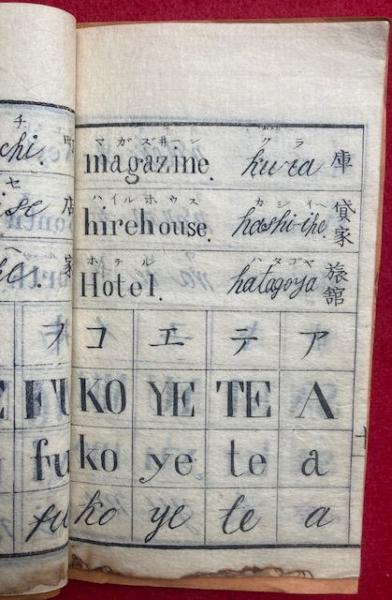 チ
chi.
セ
se 店
家
フ
FU
fu
fu
マガズ井ン クラ
magazine. kura 庫
ハイルホウス カシイヘ
hirehouse. kashi-ihe. 貸家
ホテル ハタゴヤ
Hotel. hatagoya 旅館
コ エ テ ア
KO YE TE A
ko ye te a
ko ye te a